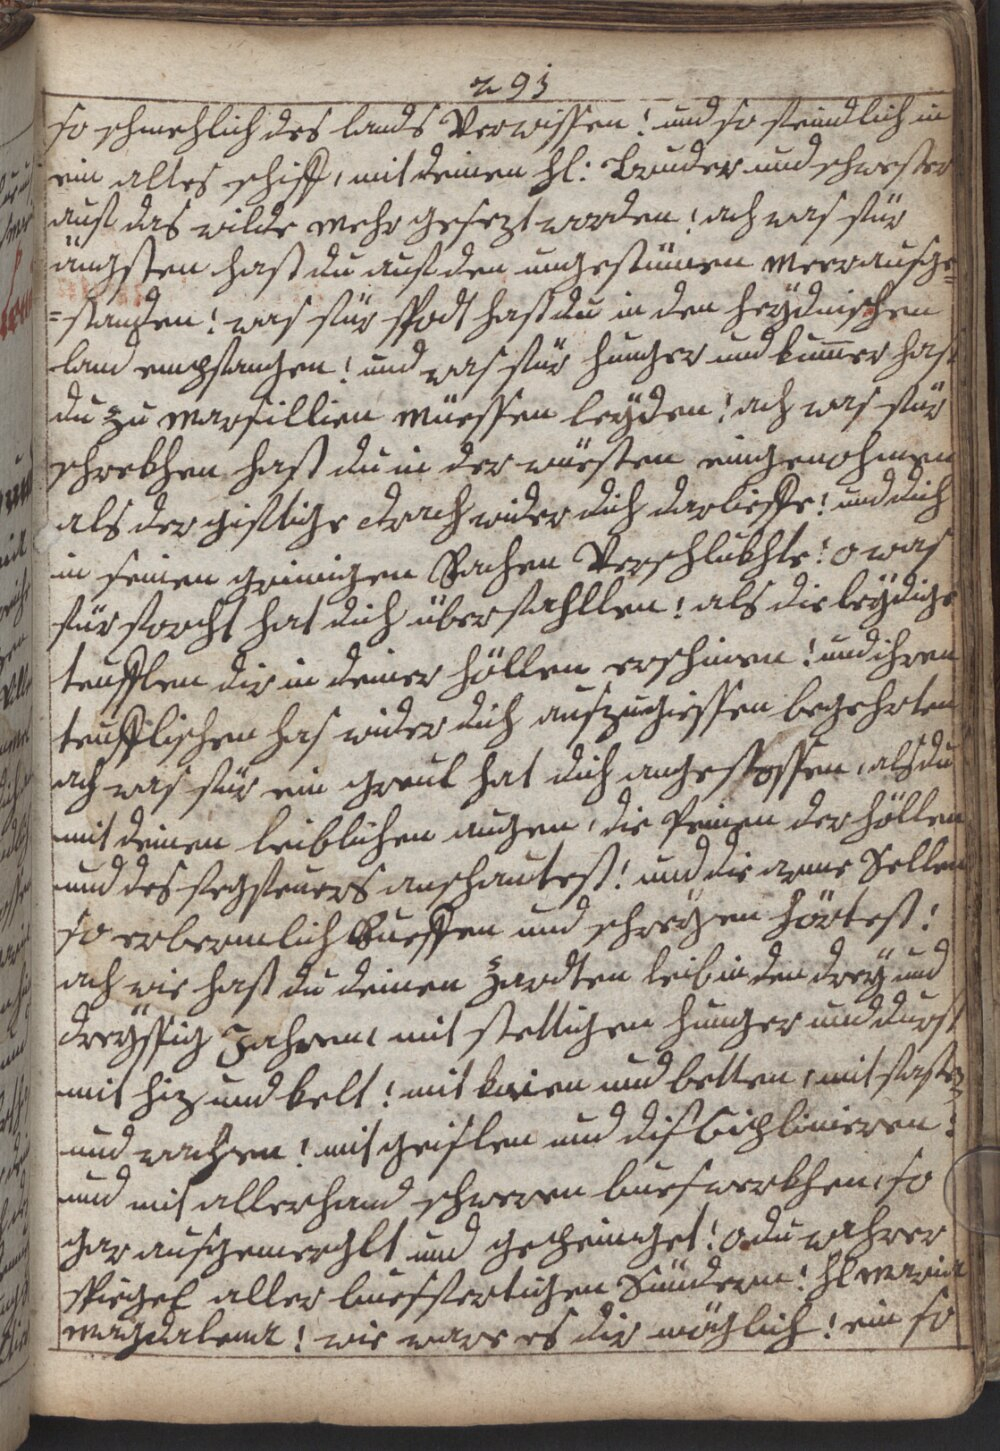 291
so schmehlich des lands Verwissen! und so feindlich in
ein altes schiff, mit deinen hl: bruder und schwester
auf das wilde mehr gesezt worden! ach was für
ängsten hast du auf den ungestümen meer ausge=
=standen! was für spodt hast du in den heÿdnischen
land empfangen! und was für hunger und kummer hast
du zu marsillien müessen leÿden! ach was für
schrekhen hast du in der wüesten eingenohmen
als der gifftige drach wider dich darlieffe! und dich
in seinen grimigen Rachen Verschlukhte! o was
für forcht hat dich überfahllen! als die leÿdige
teufflen dir in deiner höllen erschinen! und ihren
teufflischen has wider dich auszugiessen begehrten
ach was für ein greul hat dich angestossen, als du
mit deinen leiblichen augen, die Peinen der höllen
und des fegfeuers anschautest! und die arme Sellen
so erbermlich Rueffen und schreÿen hörtest!
ach wie hast du deinen zardten leib in den dreÿ und
dreÿssig Jahren, mit stettigen hunger und durst
mit hiz und kelt! mit knien und betten, mit fasten
und wachen! mit geislen und disciplinieren!
und mit allerhand schweren buesswerkhen, so
gar ausgemerghlt und gepeiniget! o du wahrer
spiegel aller buessfertigen Sündern! hl maria
magdalena! wie ware es dir möglich! ein so